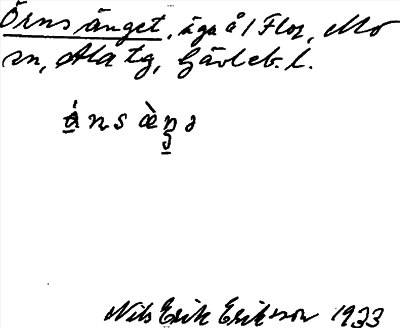 Örnsänget, äga å / Flor, Mo
sn, Ala tg, Gävleb. l.
ɑ́nsæ̀ŋə
Nils Erik Eriksson 1933